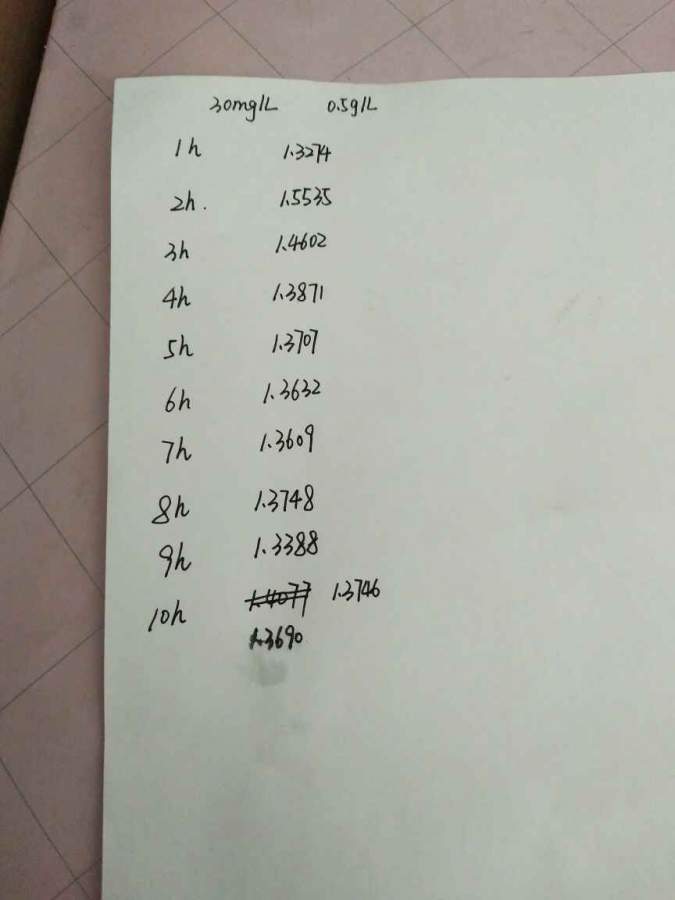 30mg/L 0.5g/L
1h 1.3274
2h. 1.5535
3h 1.4602
4h 1.3871
5h 1.3707
6h 1.3632
7h 1.3609
8h 1.3748
9h 1.3388
10h 1.4077 1.3746
1.3690